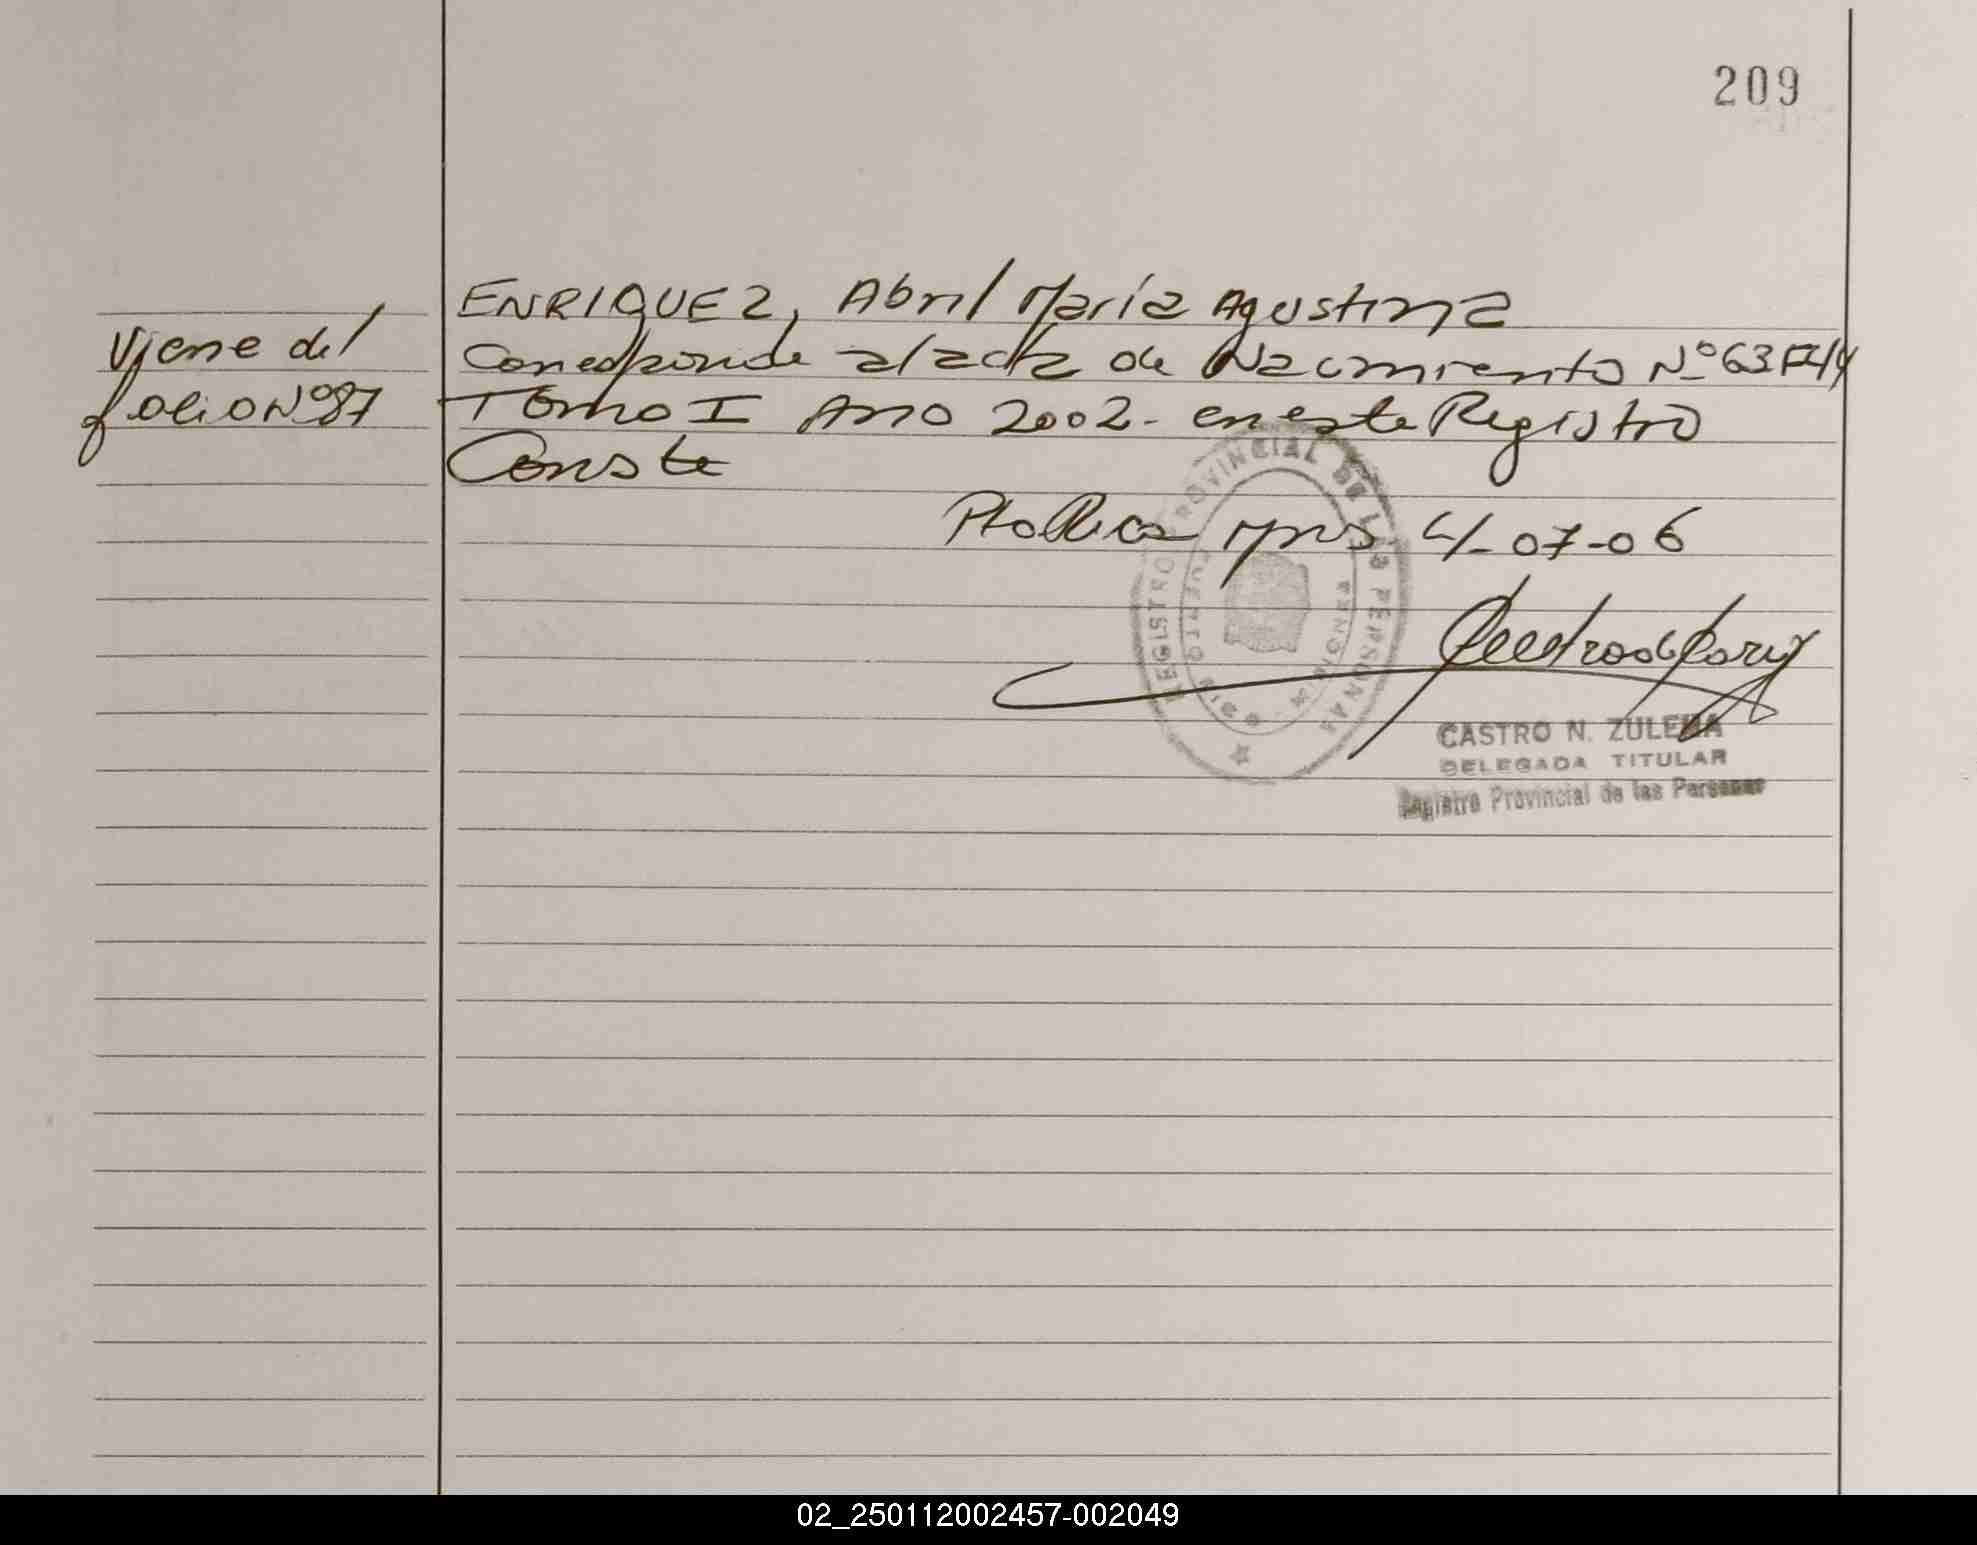 209
ENRIQUEZ, Abril María Agustina
Viene del
folio Nº 87
Corresponde al acta de Nacimiento Nº 63 F44
Tomo I Año 2002- en este Registro
Conste
Pto Rico Mns 4-07-06
REGISTRO PROVINCIAL DE LAS PERSONAS
CASTRO N. ZULEMA
DELEGADA TITULAR
Registro Provincial de las Personas
02_250112002457-002049